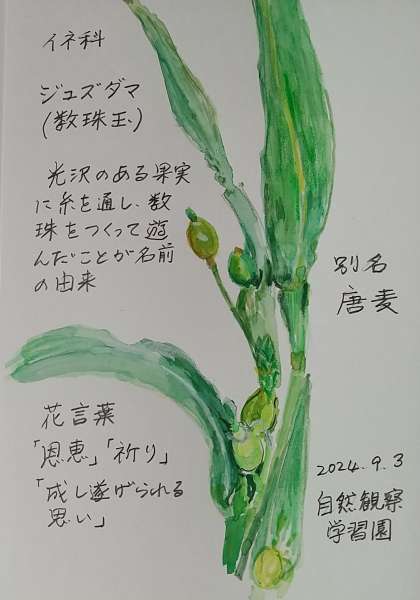 イネ科
ジュズダマ
(数珠玉)
光沢のある果実
に糸を通し、数
珠をつくって遊
んだことが名前
の由来
別名
唐麦
花言葉
「恩恵」「祈り」
「成し遂げられる
思い」
2024.9.3
自然観察
学習園